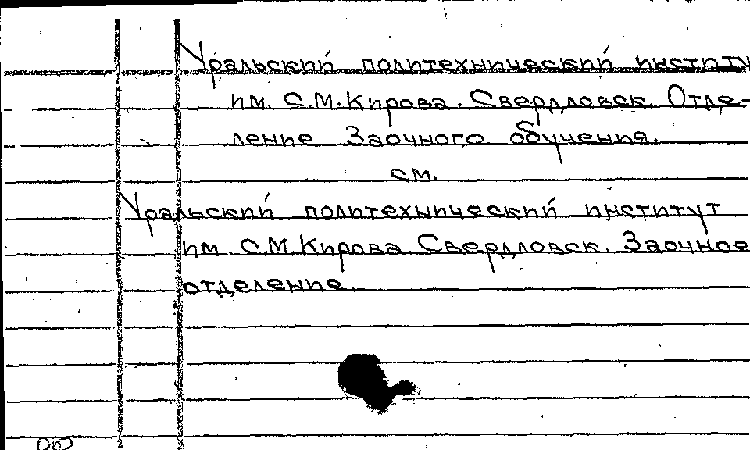 Уральский политехнический институ
им. С.М. Кирова. Свердловск. Отде-
ление Заочного обучения.
см.
Уральский политехнический институт
им. С.М. Кирова. Свердловск. Заочное
отделение.